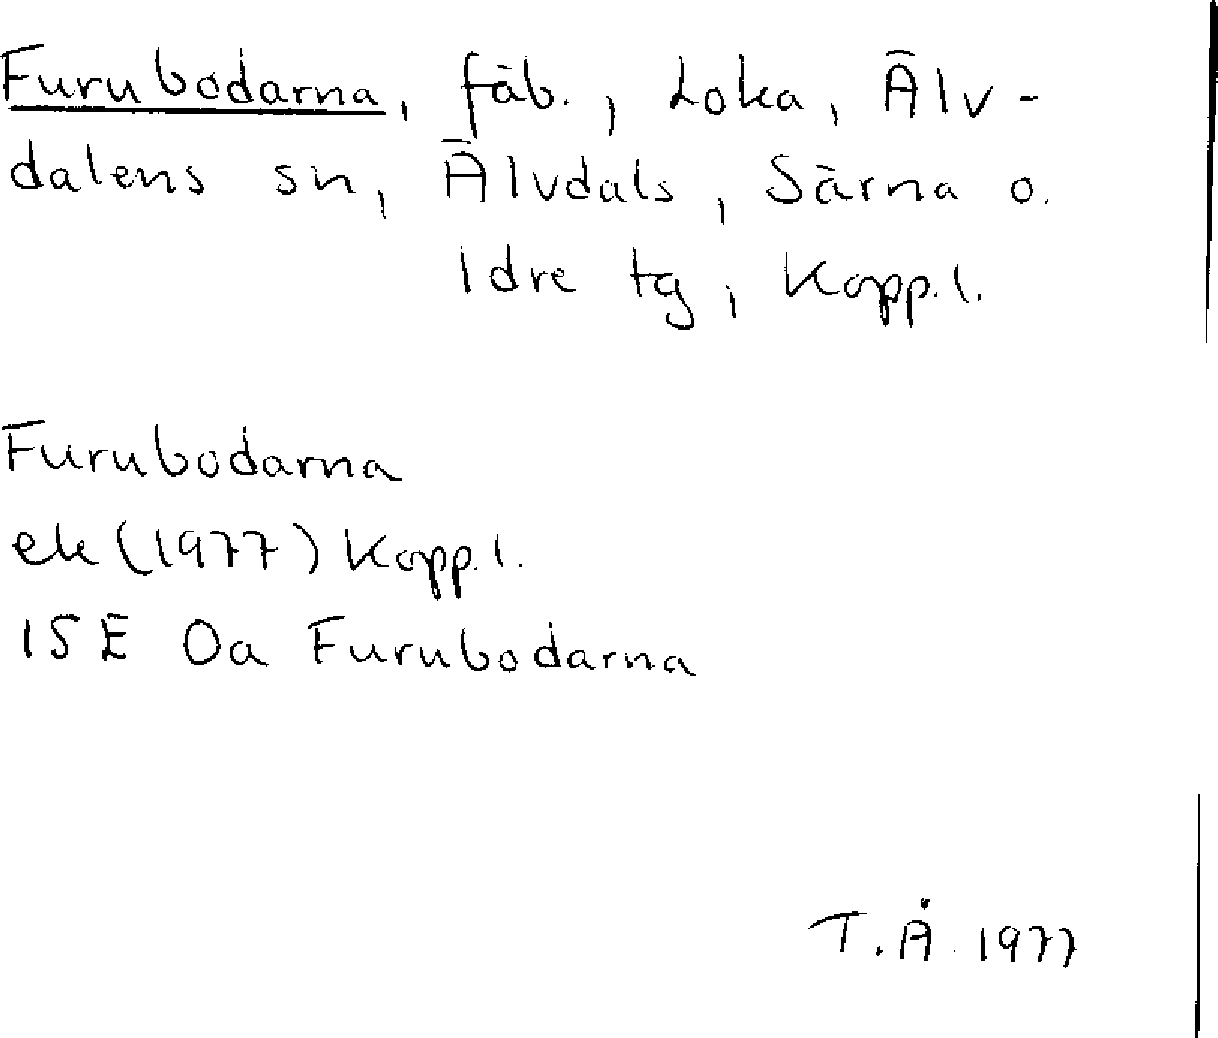 Furubodarna, fäb., Loka, Älv-
dalens sn, Älvdals, Särna o.
Idre tg, Kopp.l.
Furubodarna
ek (1977) Kopp.l.
15E 0a Furubodarna
T.Å. 1977